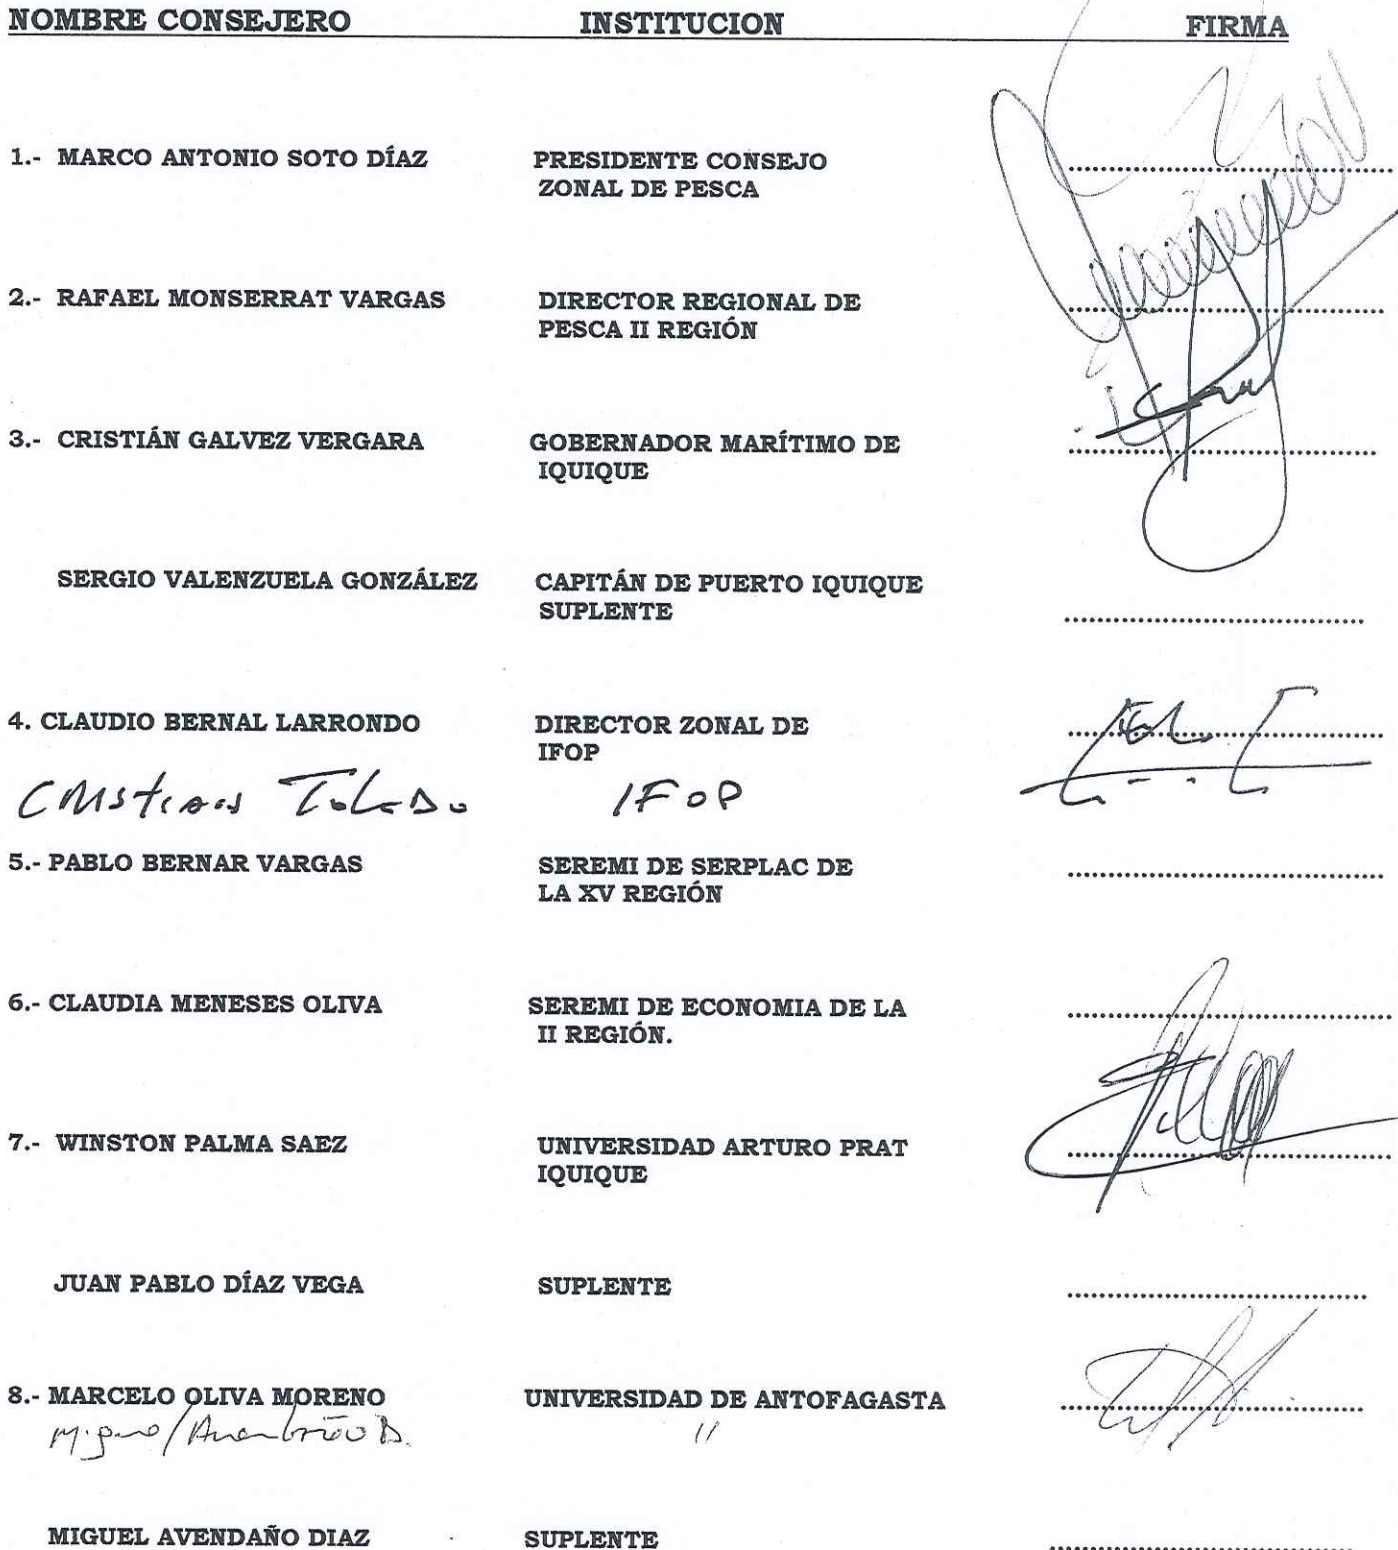 NOMBRE CONSEJERO INSTITUCION FIRMA
1.- MARCO ANTONIO SOTO DÍAZ PRESIDENTE CONSEJO
ZONAL DE PESCA
2.- RAFAEL MONSERRAT VARGAS DIRECTOR REGIONAL DE
PESCA II REGIÓN
3.- CRISTIÁN GALVEZ VERGARA GOBERNADOR MARÍTIMO DE
IQUIQUE
SERGIO VALENZUELA GONZÁLEZ CAPITÁN DE PUERTO IQUIQUE
SUPLENTE
4. CLAUDIO BERNAL LARRONDO DIRECTOR ZONAL DE
IFOP
Cristian Toledo IFOP
5.- PABLO BERNAR VARGAS SEREMI DE SERPLAC DE
LA XV REGIÓN
6.- CLAUDIA MENESES OLIVA SEREMI DE ECONOMIA DE LA
II REGIÓN.
7.- WINSTON PALMA SAEZ UNIVERSIDAD ARTURO PRAT
IQUIQUE
JUAN PABLO DÍAZ VEGA SUPLENTE
8.- MARCELO OLIVA MORENO UNIVERSIDAD DE ANTOFAGASTA
Miguel Avendaño D. "
MIGUEL AVENDAÑO DIAZ SUPLENTE